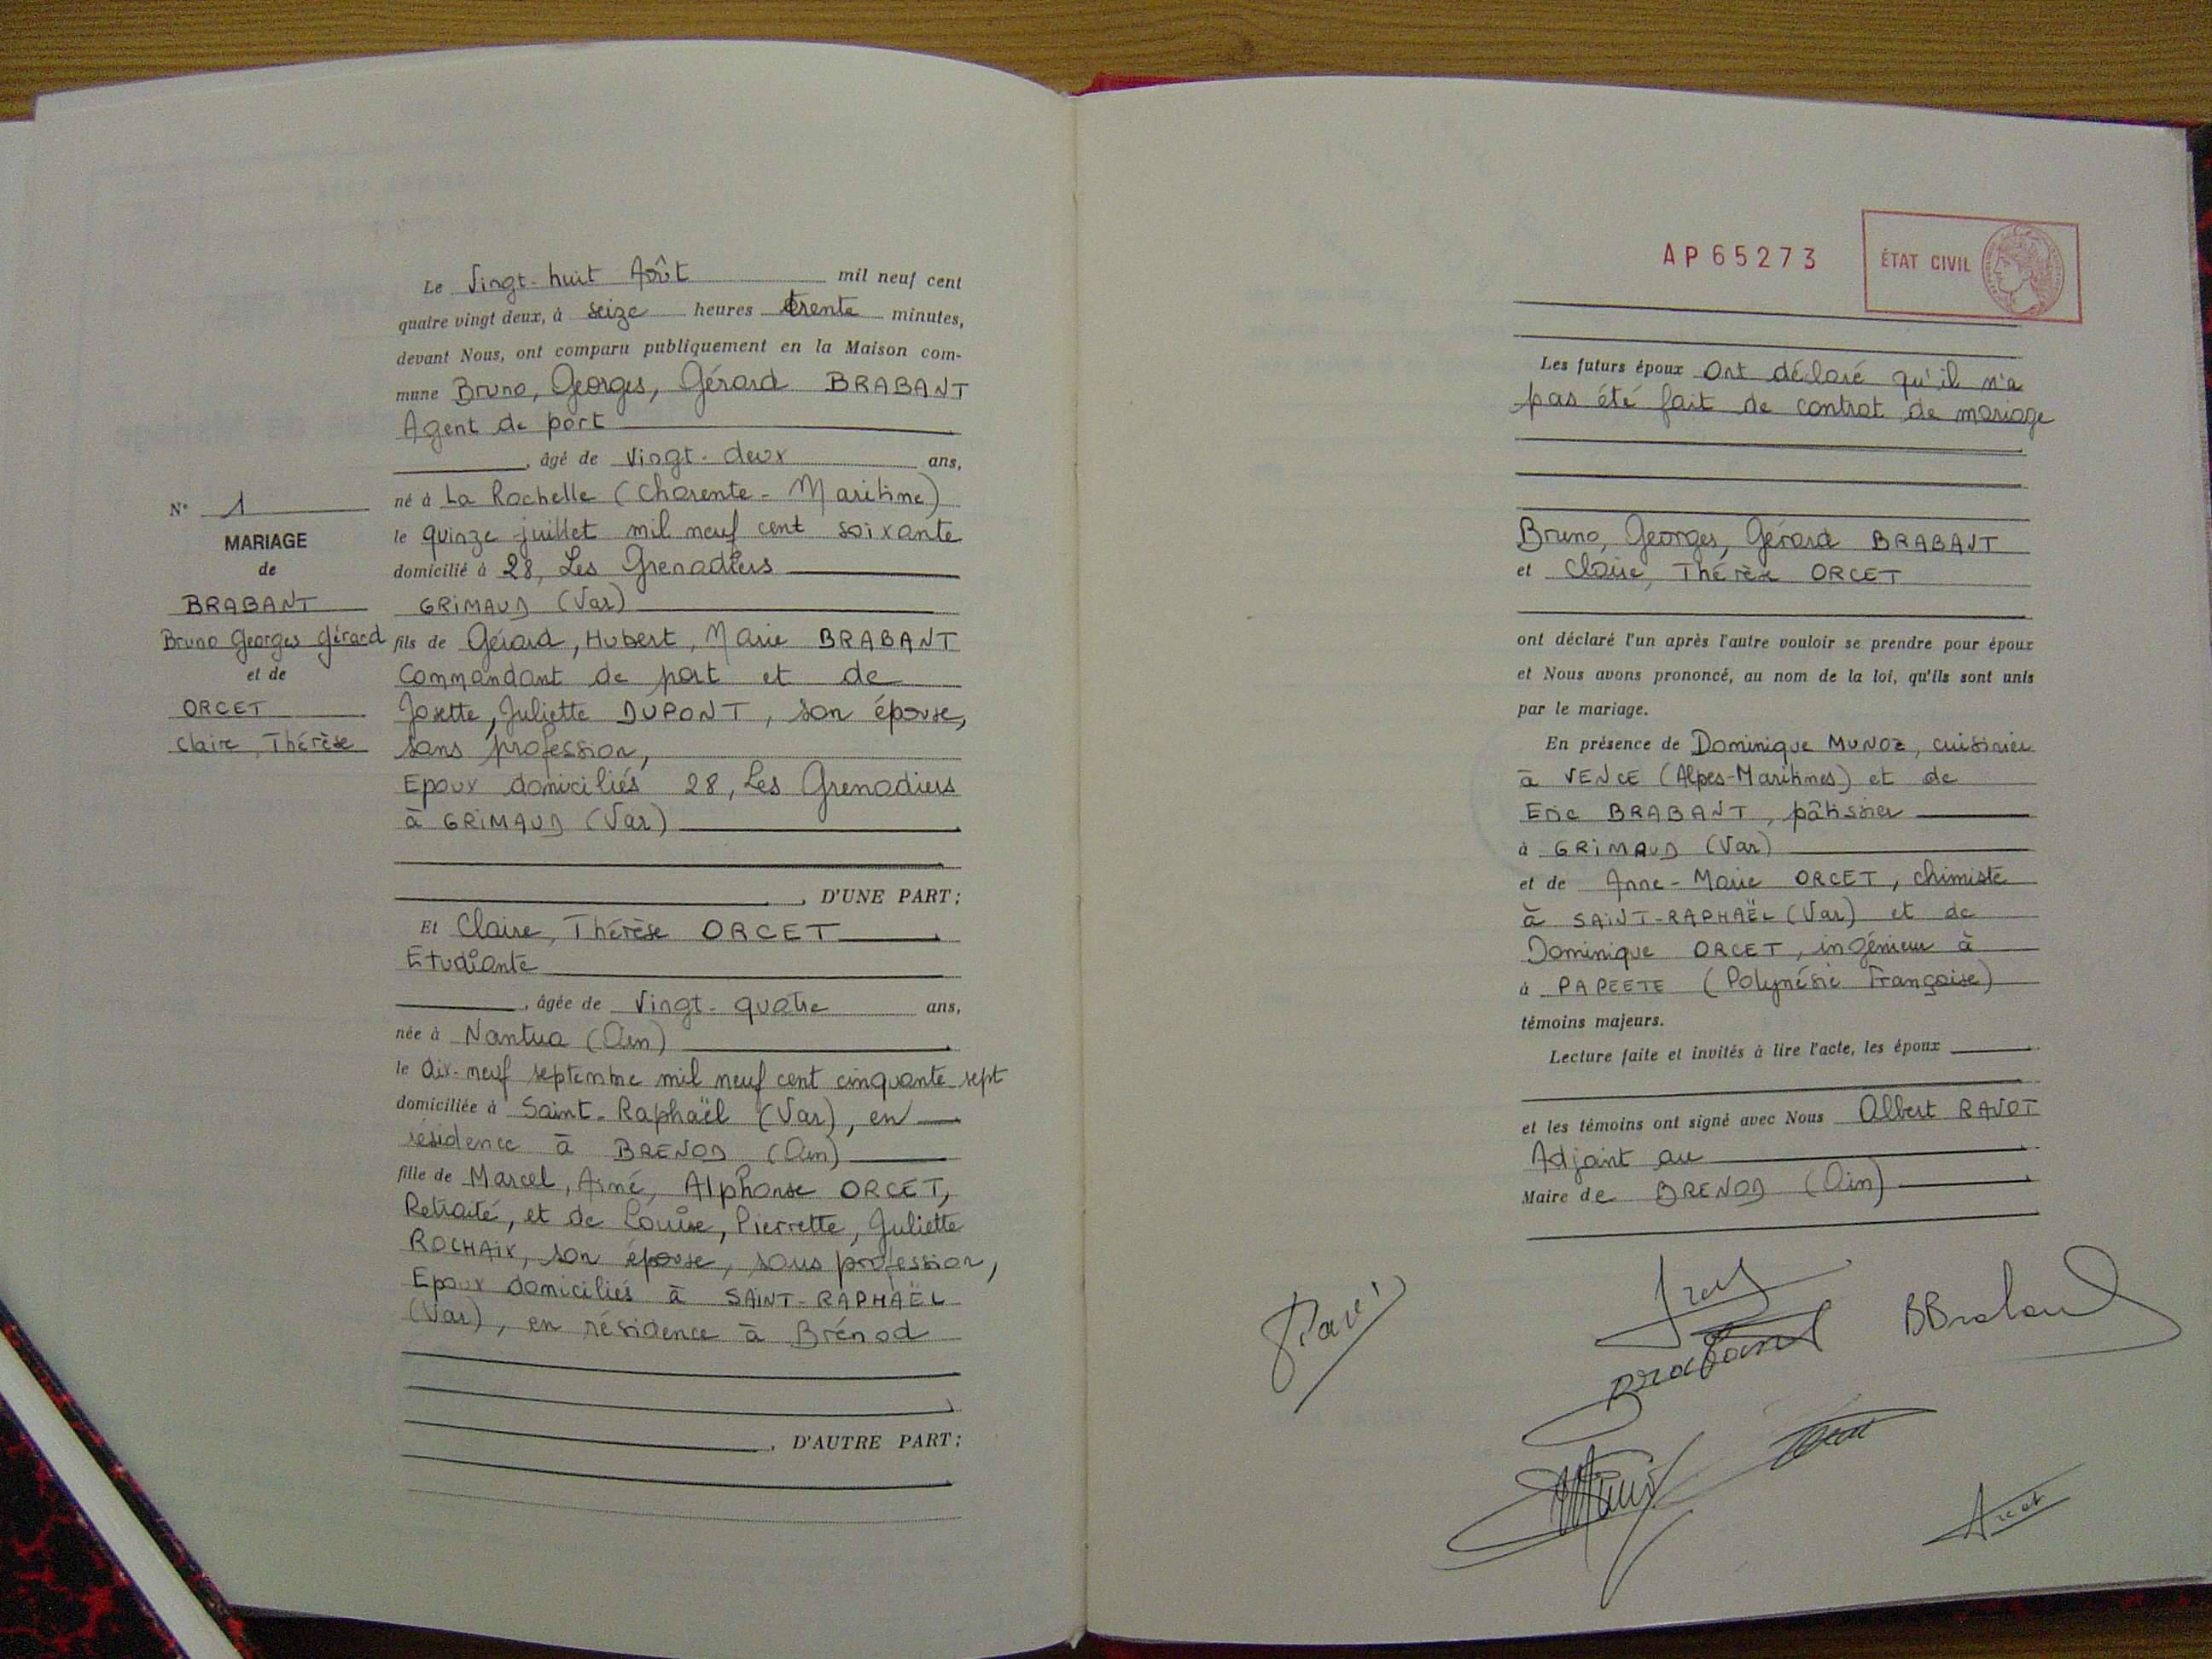 N° 1
MARIAGE
de
BRABANT
Bruno Georges Gérard
et de
ORCET
Claire, Thérèse
Le Vingt-huit Août mil neuf cent
quatre vingt deux, à seize heures trente minutes,
devant Nous, ont comparu publiquement en la Maison com-
mune Bruno, Georges, Gérard BRABANT
Agent de port
, âgé de Vingt-deux ans,
né à La Rochelle (Charente-Maritime)
le quinze juillet mil neuf cent soixante
domicilié à 28, Les Grenadiers
GRIMAUD (Var)
fils de Gérard, Hubert, Marie BRABANT
Commandant de port et de
Josette, Juliette DUPONT, son épouse,
sans profession,
Epoux domiciliés 28, Les Grenadiers
à GRIMAUD (Var)
, D'UNE PART ;
Et Claire, Thérèse ORCET
Etudiante
, âgée de Vingt-quatre ans,
née à Nantua (Ain)
le dix-neuf septembre mil neuf cent cinquante sept
domiciliée à Saint-Raphaël (Var), en
résidence à BRENOD (Ain)
fille de Marcel, Aimé, Alphonse ORCET,
Retraité, et de Louise, Pierrette, Juliette
ROCHAIX, son épouse, sans profession,
Epoux domiciliés à SAINT-RAPHAËL
(Var), en résidence à Brénod
, D'AUTRE PART ;
AP65273
ÉTAT CIVIL
Les futurs époux Ont déclaré qu'il n'a
pas été fait de contrat de mariage
Bruno, Georges, Gérard BRABANT
et Claire, Thérèse ORCET
ont déclaré l'un après l'autre vouloir se prendre pour époux
et Nous avons prononcé, au nom de la loi, qu'ils sont unis
par le mariage.
En présence de Dominique MUNOZ, cuisinier
à VENCE (Alpes-Maritimes) et de
Eric BRABANT, pâtissier
à GRIMAUD (Var)
et de Anne-Marie ORCET, chimiste
à SAINT-RAPHAËL (Var) et de
Dominique ORCET, ingénieur à
à PAPEETE (Polynésie Française)
témoins majeurs.
Lecture faite et invités à lire l'acte, les époux
et les témoins ont signé avec Nous Albert RAVOT
Adjoint au
Maire de BRENOD (Ain)
BBrabant
Brabant